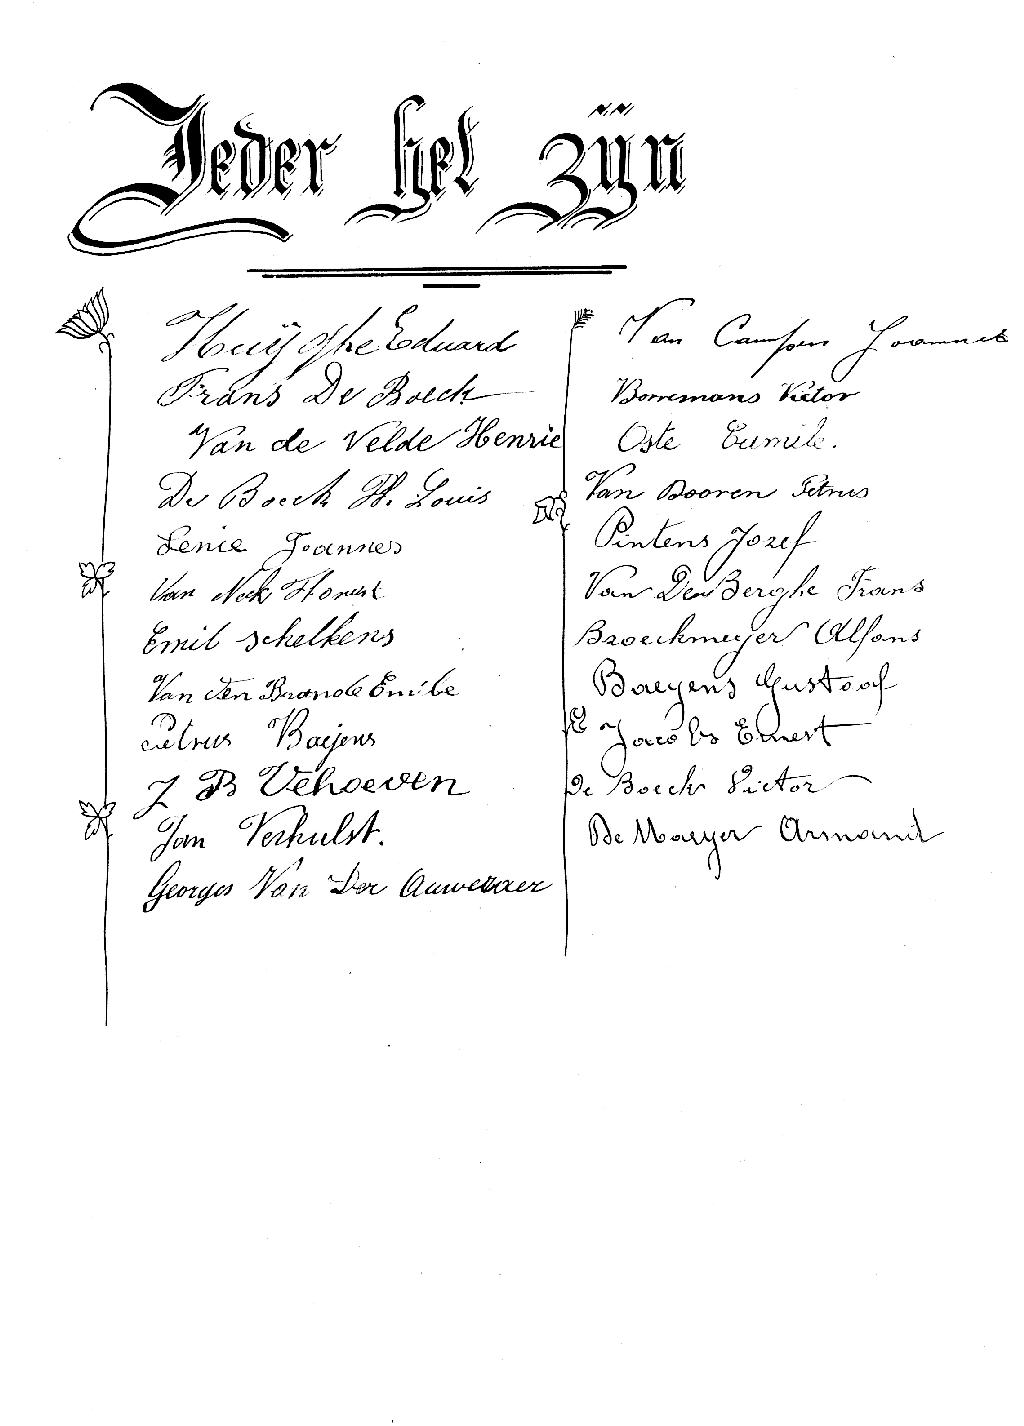 Ieder het zijn
Huÿghe Eduard
Frans De Boeck
Van de Velde Henrie
De Boeck H. Louis
Lenie Joannes
Van Neck
Emil Schelkens
Van den Brande Emile
Petrus Baijens
J B Vehoeven
Jan Verhulst.
Georges Van Der Auweraer
Van Campen Joannes
Borremans Victor
Oste Eumile.
Van Booren Petrus
Pintens Jozef
Van Den Berghe Frans
Broeckmeyer Alfons
Baeyens Gustaaf
Jacobs Ernest
De Boeck Victor
De Maeyer Armand